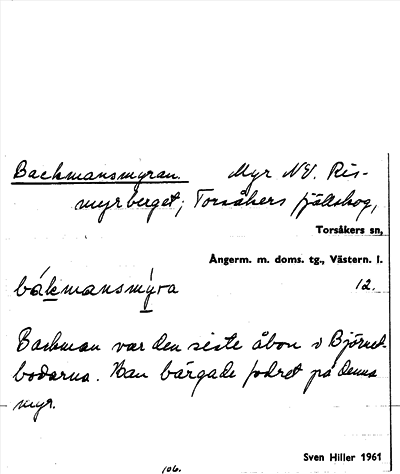 Backmansmyran. Myr NV. Ris-
myrberget, Torsåkers fjällskog,
Torsåkers sn,
Ångerm. m. doms. tg., Västern. l.
båkmansmýra 12.
Backman var den siste åbon i Björned-
bodarna. Han bärgade fodret på denna
myr.
Sven Hiller 1961
106.